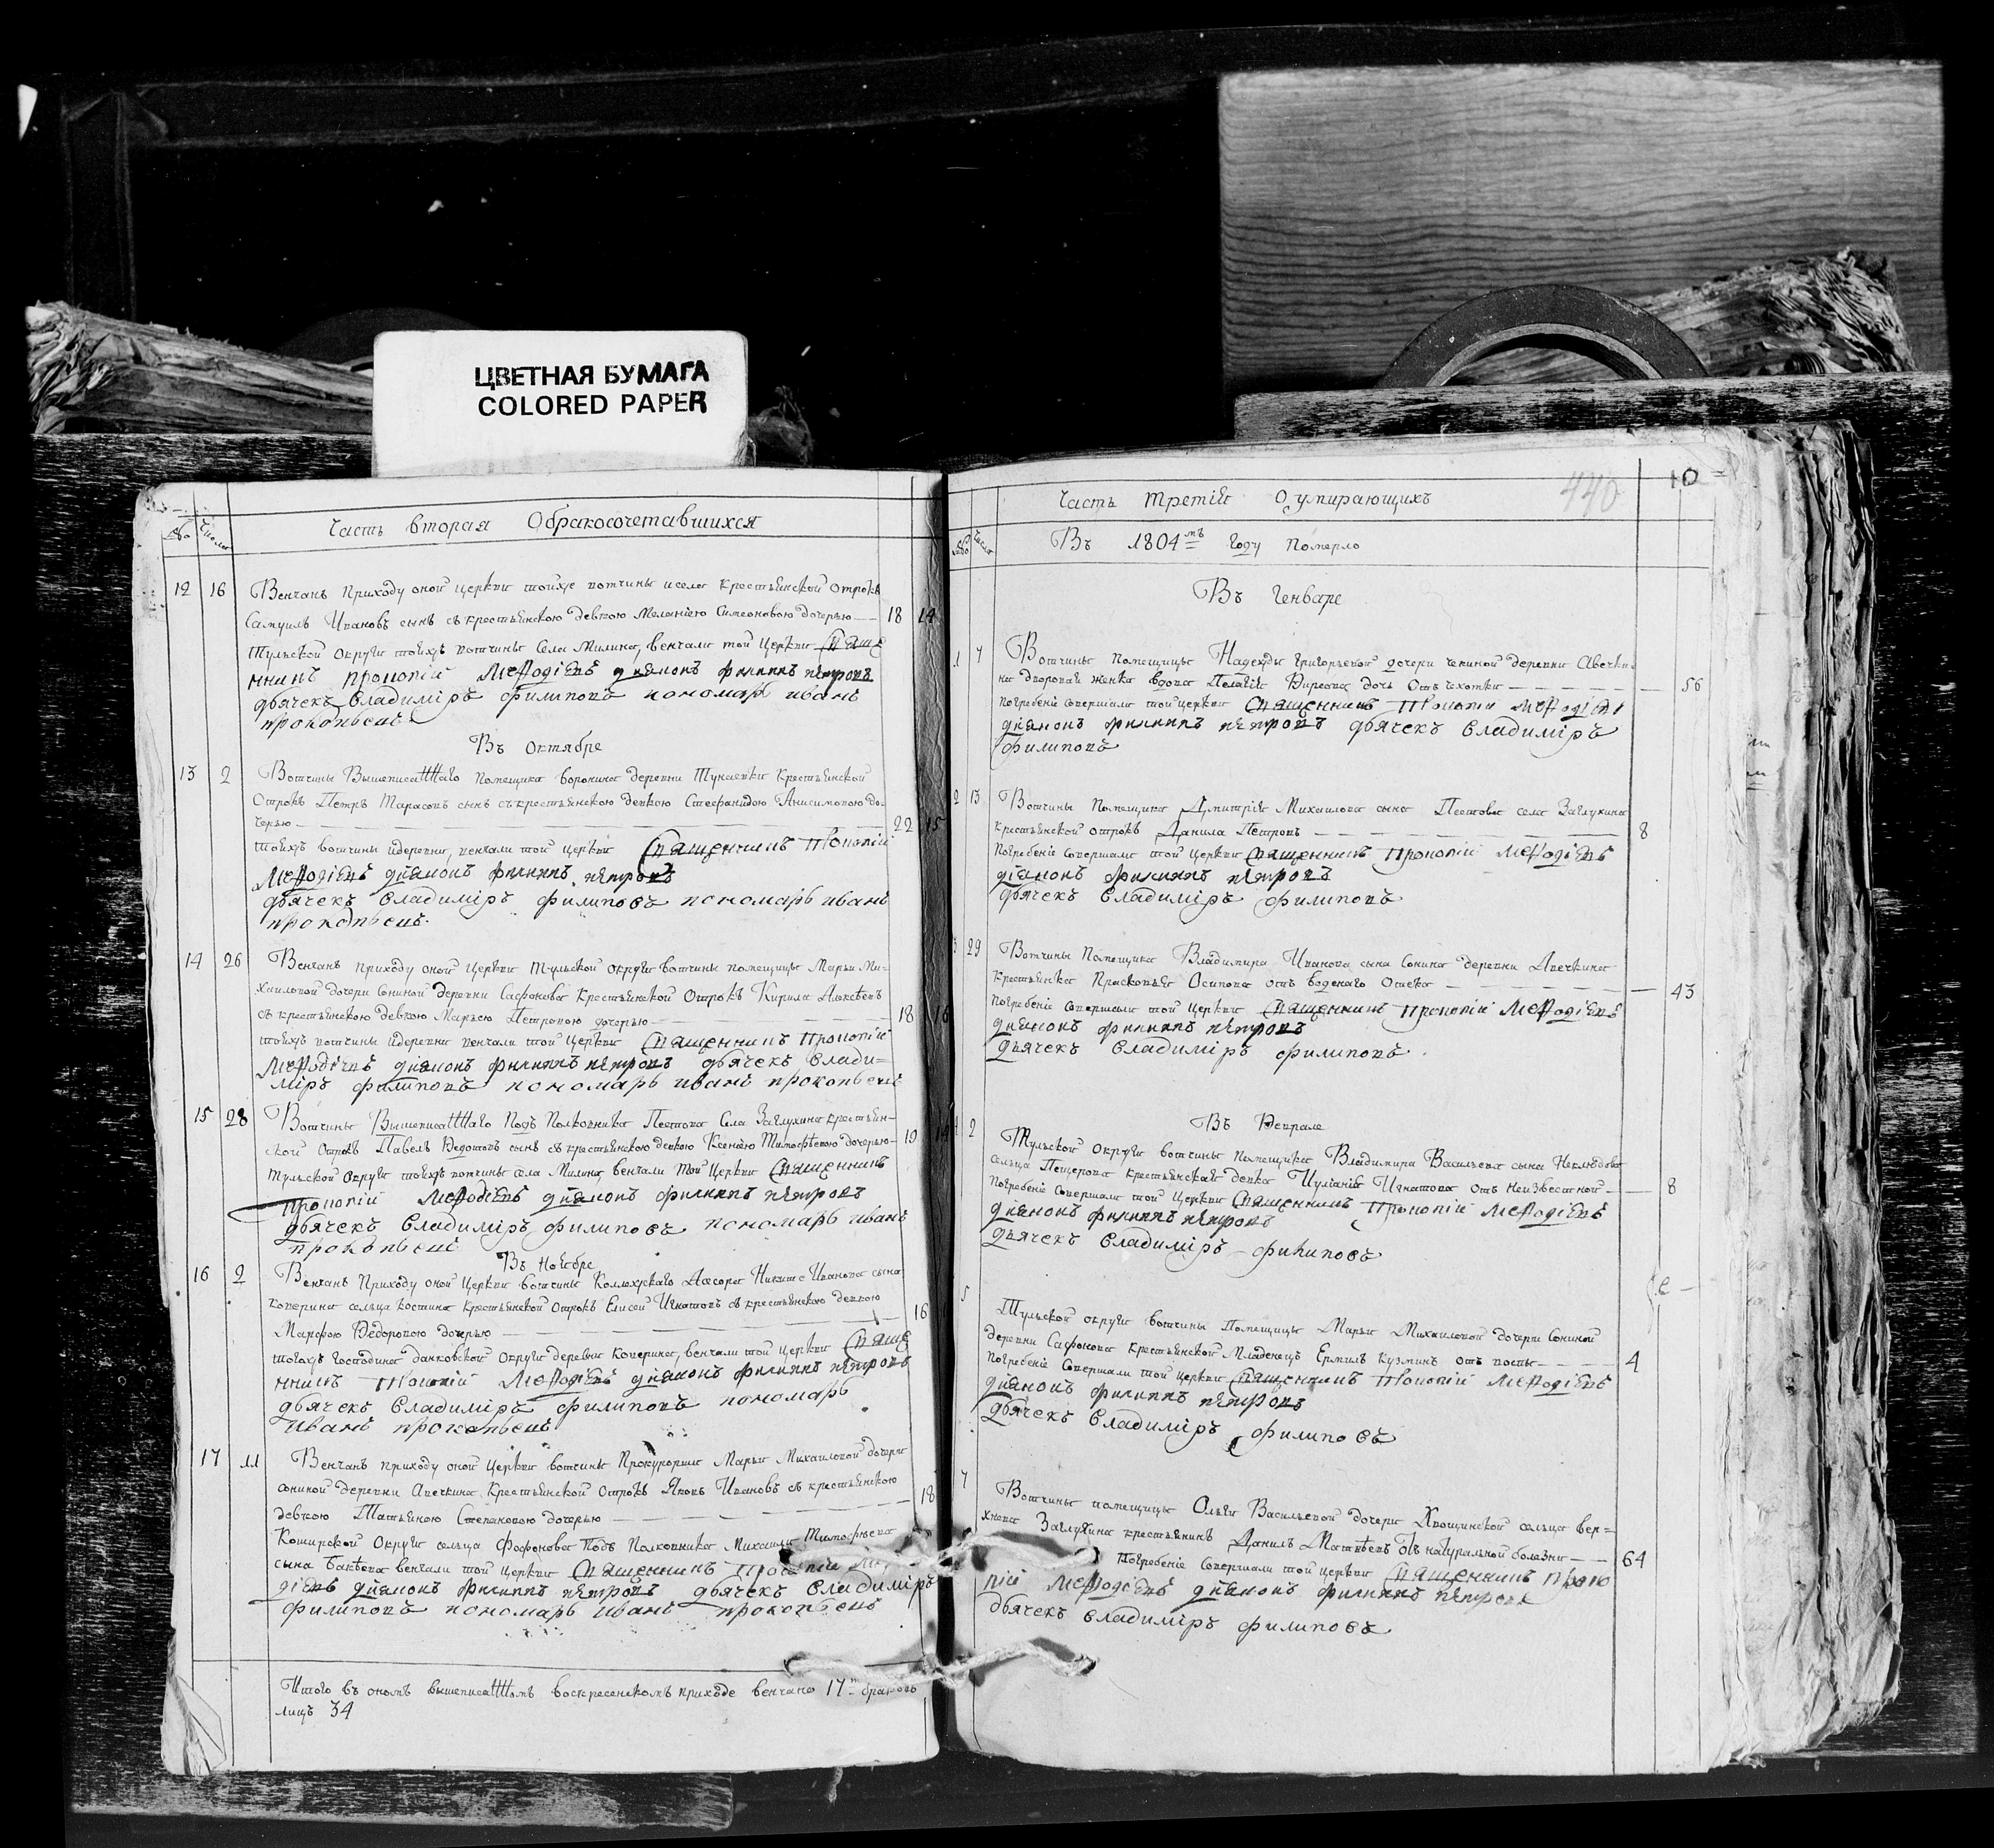 ЦВЕТНАЯ БУМАГА
COLORED PAPER
Часть вторая Обракосочетавшихся
12 16 Венчанъ приходу оной церкви тойже вотчины и села крестьянской отрокъ
Самуилъ Ивановъ сынъ съ крестьянскою девкою Меланиею Симеоновою дочерью 18 14
Тульской округи тойжъ вотчины села Милина, венчали той церкви Священникъ
Мефодіевъ діаконъ филиппъ петровъ
дьячекъ Владиміръ филиповъ пономарь иванъ
прокопьевъ
Въ Октябре
13 2 Вотчины помещика деревни крестьянской
Отрокъ Петръ Тарасовъ сынъ съ крестьянскою девкою Стефанидою Анисимовою до-
черью 22 15
тоежъ вотчины идеревни, венчали той церкви Священникъ
Мефодіевъ діаконъ филиппъ петровъ
дьячекъ Владиміръ филиповъ пономарь иванъ
прокопьевъ
14 26 Венчанъ приходу оной церкви Тульской округи вотчины помещицы Марьи Ми-
хаиловой дочери Сониной деревни Сафонова крестьянской отрокъ Кирила Алексѣевъ
съ крестьянскою девкою Марьею Петровою дочерью 18 16
тоежъ вотчины идеревни венчали той церкви Священникъ Прокопій
Мефодіевъ діаконъ филиппъ петровъ дьячекъ Влади=
міръ филиповъ пономарь иванъ прокопьевъ
15 28 Вотчины Подъ Полковника Пестова села Заглухина крестьян-
ской отрокъ Павелъ Ѳедотовъ сынъ съ крестьянскою девкою Ксениею Тимофѣевою дочерью 19
Тульской округи тоежъ вотчины села Милина венчали той церкви Священникъ
Прокопій Мефодіевъ діаконъ филиппъ петровъ
дьячекъ Владиміръ филиповъ пономарь иванъ
прокопьевъ
Въ Ноябре
16 2 Венчанъ приходу оной церкви вотчины Никиты Иванова сына
сельца Костина крестьянской отрокъ Елисей Игнатовъ съ крестьянскою девкою 16
Марфою Ѳедоровою дочерью
тогожъ господина данковской округи деревни, венчали той церкви Священникъ
Мефодіевъ діаконъ филиппъ петровъ
дьячекъ Владиміръ филиповъ пономарь
иванъ прокопьевъ
17 11 Венчанъ приходу оной церкви вотчины Прокурорши Марьи Михаиловой дочери
сониной деревни Авечкина крестьянской отрокъ Яковъ Ивановъ съ крестьянскою 18
девкою Татьяною Степановою дочерью
Коширской округи сельца Подъ Полковника Михаилы Тимофѣева
сына венчали той церкви Священникъ
діевъ діаконъ филиппъ петровъ дьячекъ Владиміръ
филиповъ пономарь иванъ прокопьевъ
Итого въ ономъ воскресенскомъ приходе венчано 17 браковъ
лицъ 34
440 10
Часть третія Оумирающихъ
Въ 1804мъ году померло
Въ Генваре
1 7 Вотчины помещицы Надежды Григорьевой дочери деревни Авечки-
на дворовая женка вдова Пелагія дочь отъ чехотки 56
погребеніе совершали той церкви Священникъ Прокопій Мефодіевъ
діаконъ филиппъ петровъ дьячекъ Владиміръ
филиповъ
2 13 Вотчины помещика Дмитрія Михаилова сына Пестова села Заглухина
крестьянской отрокъ Данила Петровъ 8
погребеніе совершали той церкви Священникъ Прокопій Мефодіевъ
діаконъ филиппъ петровъ
дьячекъ Владиміръ филиповъ
3 29 Вотчины помещика Владимира Иванова сына Сонина деревни Авечкина
крестьянка Прасковья Осипова отъ воденаго отека 43
погребеніе совершали той церкви Священникъ Прокопій Мефодіевъ
діаконъ филиппъ петровъ
дьячекъ Владиміръ филиповъ
Въ Феврале
4 2 Тульской округи вотчины помещика Владимира Васильева сына Неклюдова
сельца Пещерова крестьянская девка Иуліанія Игнатова отъ неизвестной 8
погребеніе совершали той церкви Священникъ Прокопій Мефодіевъ
діаконъ филиппъ петровъ
дьячекъ Владиміръ филиповъ
5 Тульской округи вотчины помещицы Марьи Михаиловой дочери Сониной
деревни Сафонова крестьянской младенецъ Ермилъ Кузминъ отъ воспы 4
погребеніе совершали той церкви Священникъ Прокопій Мефодіевъ
діаконъ филиппъ петровъ
дьячекъ Владиміръ филиповъ
7 Вотчины помещицы Ольги Васильевой дочери Хвощинской сельца вер=
хнева Заглухина крестьянинъ Данилъ Матвѣевъ отъ натуральной болезни 64
Погребеніе совершали той церкви Священникъ Проко
пій Мефодіевъ діаконъ филиппъ петровъ
дьячекъ Владиміръ филиповъ